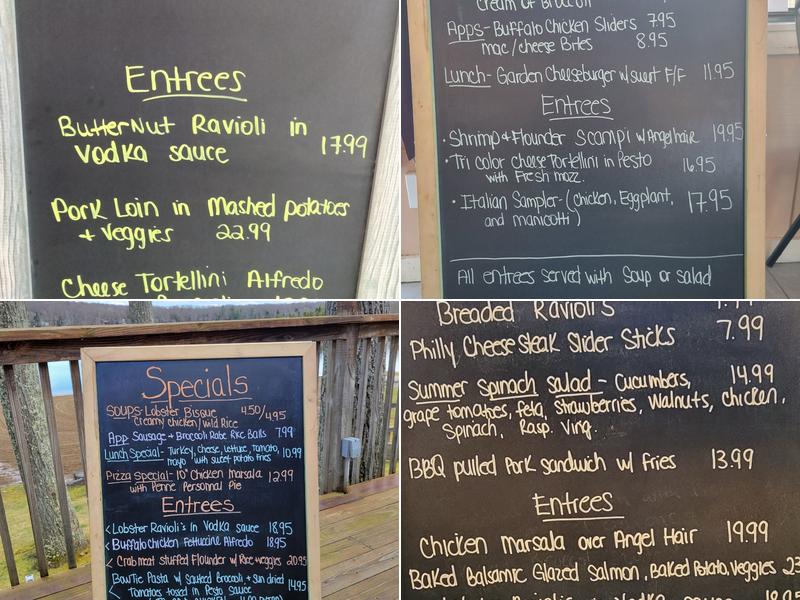 Entrees
ButterNut Ravioli in
Vodka sauce 17.99
Pork Loin in Mashed potatoes
+ Veggies 22.99
Cheese Tortellini Alfredo
Cream of Broccoli
Apps- Buffalo Chicken Sliders 7.95
mac/cheese Bites 8.95
Lunch- Garden Cheeseburger w/sweet F/F 11.95
Entrees
• Shrimp + Flounder Scampi w/Angelhair 19.95
• Tri color cheese Tortellini in Pesto 16.95
with Fresh mozz.
• Italian Sampler- (chicken, Eggplant, 17.95
and manicotti)
All entrees served with Soup or salad
Specials
SOUPS- Lobster Bisque 4.50/4.95
Creamy chicken/wild Rice
App Sausage + Broccoli Rabe Rice Balls 7.99
Lunch Special- Turkey, cheese, Lettuce, Tomato, 10.99
mayo with sweet potato fries
Pizza Special- 10" Chicken Marsala 12.99
with Penne Personal Pie
Entrees
< Lobster Ravioli's in Vodka sauce 18.95
< Buffalo Chicken Fettuccine Alfredo 18.95
< Crab meat stuffed Flounder w/ Rice veggies 20.95
< BowTie Pasta w/ sauteed Broccoli + sun dried 14.95
Tomatoes tossed in Pesto sauce
Breaded Ravioli's
Philly Cheese steak Slider Sticks 7.99
Summer spinach salad - Cucumbers, 14.99
grape tomatoes, feta, strawberries, walnuts, chicken,
Spinach, Rasp. Ving.
BBQ pulled Pork sandwich w/ fries 13.99
Entrees
Chicken Marsala over Angel Hair 19.99
Baked Balsamic Glazed Salmon, Baked Potato, Veggies 23